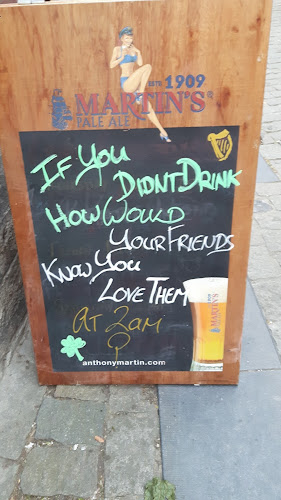 ESTD 1909
MARTIN'S
PALE ALE
IF YOU
DIDNT DRINK
HOW WOULD
YOUR FRIENDS
KNOW YOU
LOVE THEM
AT 2AM
?
MARTIN'S
anthonymartin.com